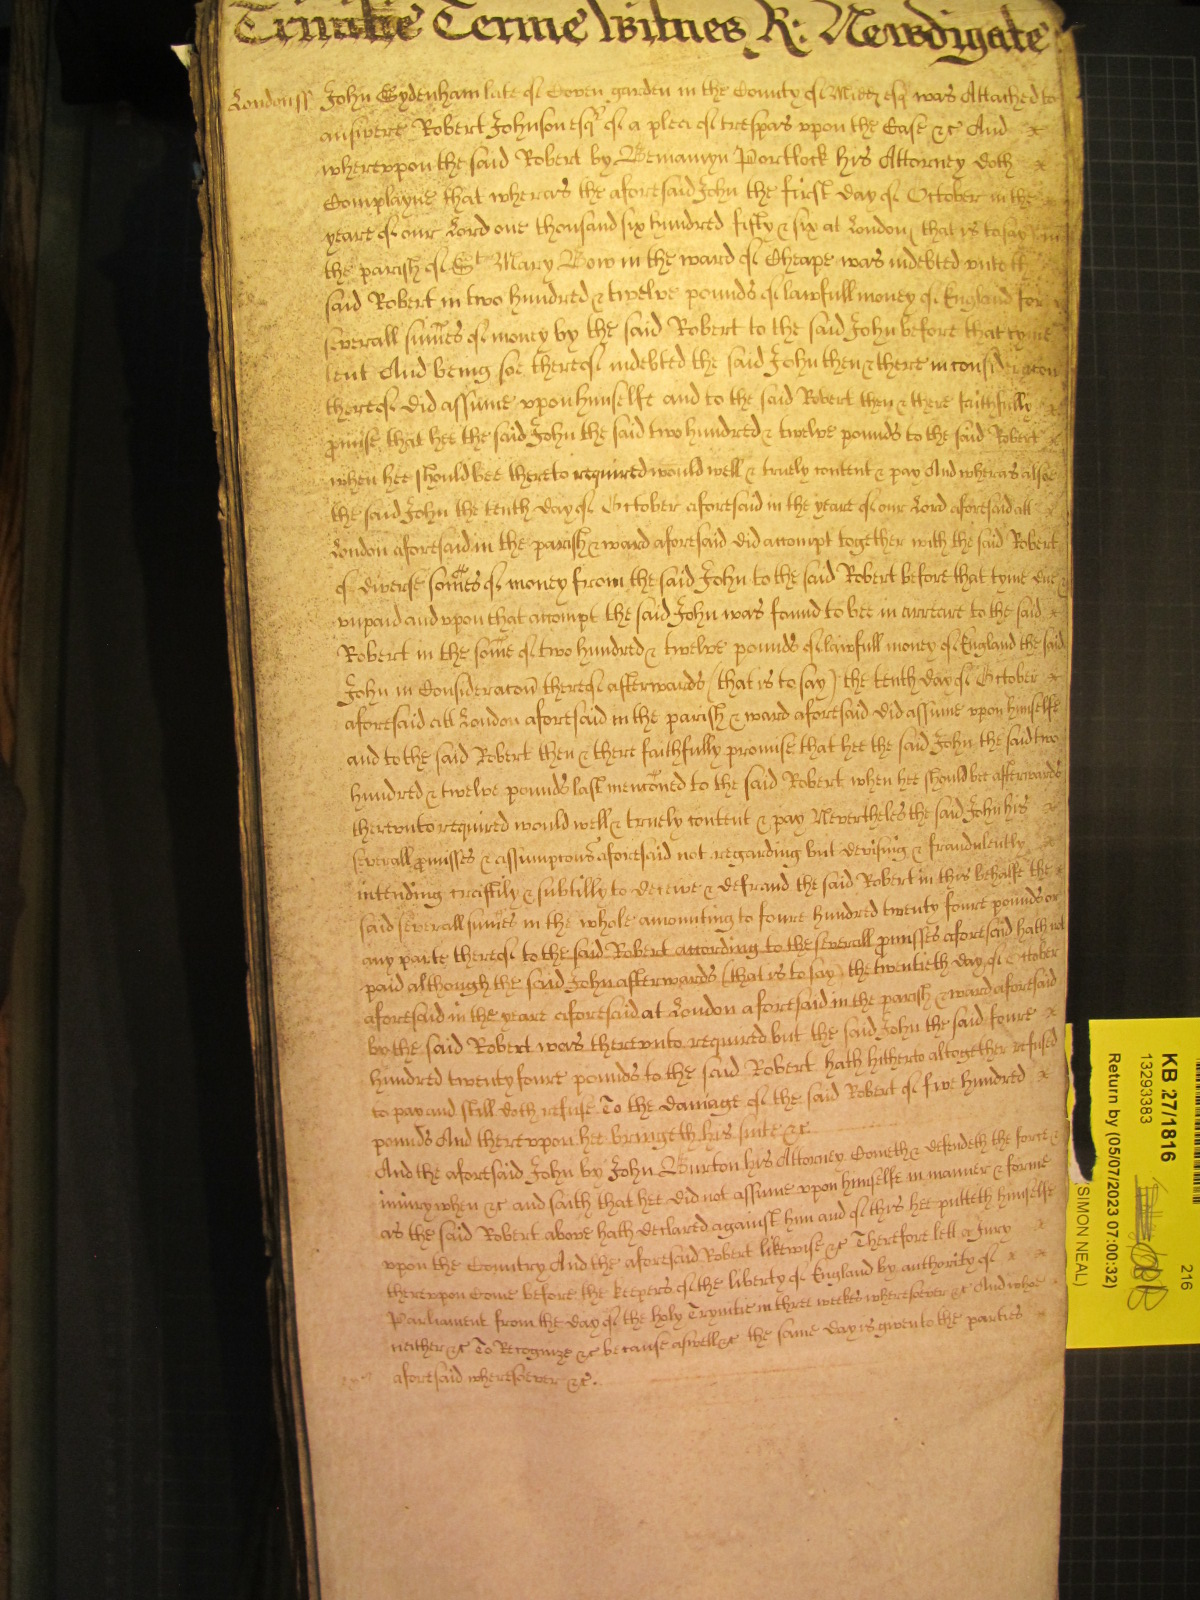 Trinitie Terme Witnes R: Newdigate
London ss John Sydenham late of Coven garden in the County of Midd esq was Attached to
answere Robert Johnson esq of a plea of trespas upon the Case &c And
whereupon the said Robert by Beniamyn Portlock his Attorney doth
Complayne that wheras the aforesaid John the first day of October in the
yeare of our Lord one thousand six hundred fifty & six at London (that is to say) in
the parish of St Mary Bow in the ward of Cheape was indebted unto
said Robert in two hundred & twelve pounds of lawfull money of England for
severall sumes of money by the said Robert to the said John before that tyme
lent And being soe thereof indebted the said John then & there in consideracon
thereof did assume upon himselfe and to the said Robert then & there faithfully
promise that hee the said John the said two hundred & twelve pounds to the said Robert
when hee should bee thereto required would well & truely content & pay And wheras alsoe
the said John the tenth day of October aforesaid in the yeare of our Lord aforesaid att
London aforesaid in the parish & ward aforesaid did accompt together with the said Robert
of diverse somes of money from the said John to the said Robert before that tyme due &
unpaid and upon that accompt the said John was found to bee in arreare to the said
Robert in the some of two hundred & twelve pounds of lawfull money of England the said
John in Consideracon thereof afterwards (that is to say) the tenth day of October
aforesaid att London aforesaid in the parish & ward aforesaid did assume upon himselfe
and to the said Robert then & there faithfully promise that hee the said John the said two
hundred & twelve pounds last mencoed to the said Robert when hee should bee afterwards
thereunto required would well & truely content & pay Nevertheles the said John his
severall promisses & assumpcons aforesaid not regarding but devising & fraudulently
intending craftily & subtilly to deceive & defraud the said Robert in this behalfe the
said severall sumes in the whole amounting to foure hundred twenty foure pounds or
any parte thereof to the said Robert according to the severall promisses aforesaid hath not
paid although the said John afterwards (that is to say) the twentieth day of October
aforesaid in the yeare aforesaid at London aforesaid in the parish & ward aforesaid
by the said Robert was thereunto required but the said John the said foure
hundred twenty foure pounds to the said Robert hath hitherto altogether refused
to pay and still doth refuse To the damage of the said Robert of five hundred
pounds And thereupon hee bringeth his suite &c
And the aforesaid John by John Burton his Attorney Cometh & defendeth the force &
iniury when &c and saith that hee did not assume upon himselfe in manner & forme
as the said Robert above hath declared against him and of this hee putteth himselfe
upon the Countrey And the aforesaid Robert likewise &c Therefore lett a Jury
thereupon Come before the keepers of the liberty of England by authority of
Parliament from the day of the holy Trynitie in three weekes wheresoever &c And whoe
neither &c To Recognize &c because aswell &c the same day is given to the parties
aforesaid wheresoever &c.
KB 27/1816
13293383
Return by (05/07/2023 07:00:32)
SIMON NEAL)
216